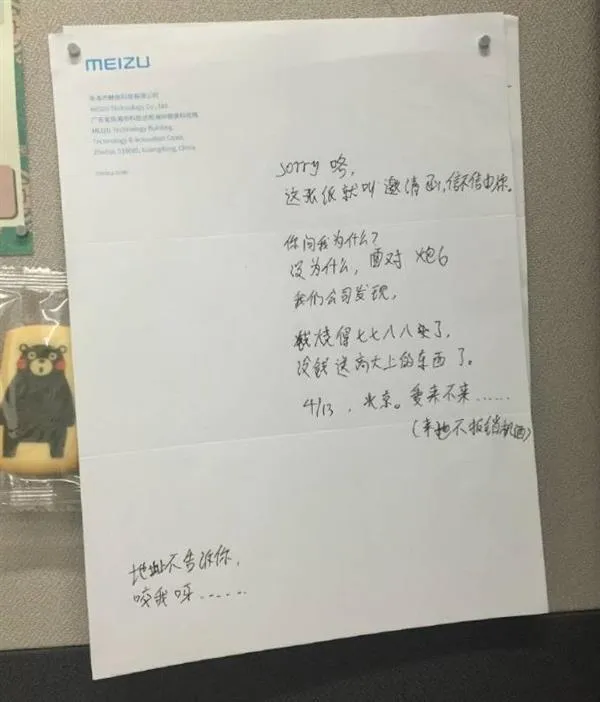 MEIZU
珠海市魅族科技有限公司
MEIZU Technology Co., Ltd.
MEIZU Technology Building,
Technology & Innovation Coast,
Zhuhai, 519085, Guangdong, China
sorry 咯,
这张纸就叫邀请函,信不信由你。
你问我为什么?
没为什么,面对 炮6
我们公司发现,
钱烧得七七八八了,
没钱送高大上的东西了。
4/13 , 北京。爱来不来......
(来也不报销机酒)
地址不告诉你,
咬我呀......